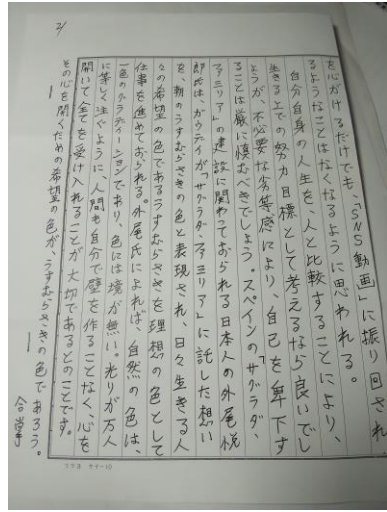 21
を心がけるだけでも、「SNS動画」に振り回され、
るようなことはなくなるように思われる。
自分自身の人生を、人と比較することにより、
生きる上での努力目標として考えるなら良いでし
ようが、不必要な劣等感により、自己を卑下す
ることは厳に慎むべきでしょう。スペインの「サグラダ、
ファミリア」の建設に関わっておられる日本人の外尾悦
郎氏は、ガウディが「サグラダ、ファミリア」に託した想い
を、朝のうすむらさきの色と表現され、日々生きる人
々の希望の色であるうすむらさきを理想の色として
仕事を進めておられる。外尾氏によれば、自然の色は、
一色のグラディーションであり、色には境が無い。光りが万人
に等しく注ぐように、人間も自分で壁を作ることなく、心を
開いて全てを受け入れることが大切であるとのことです。
その心を開くための希望の色が、うすむらさきの色であろう。
合掌